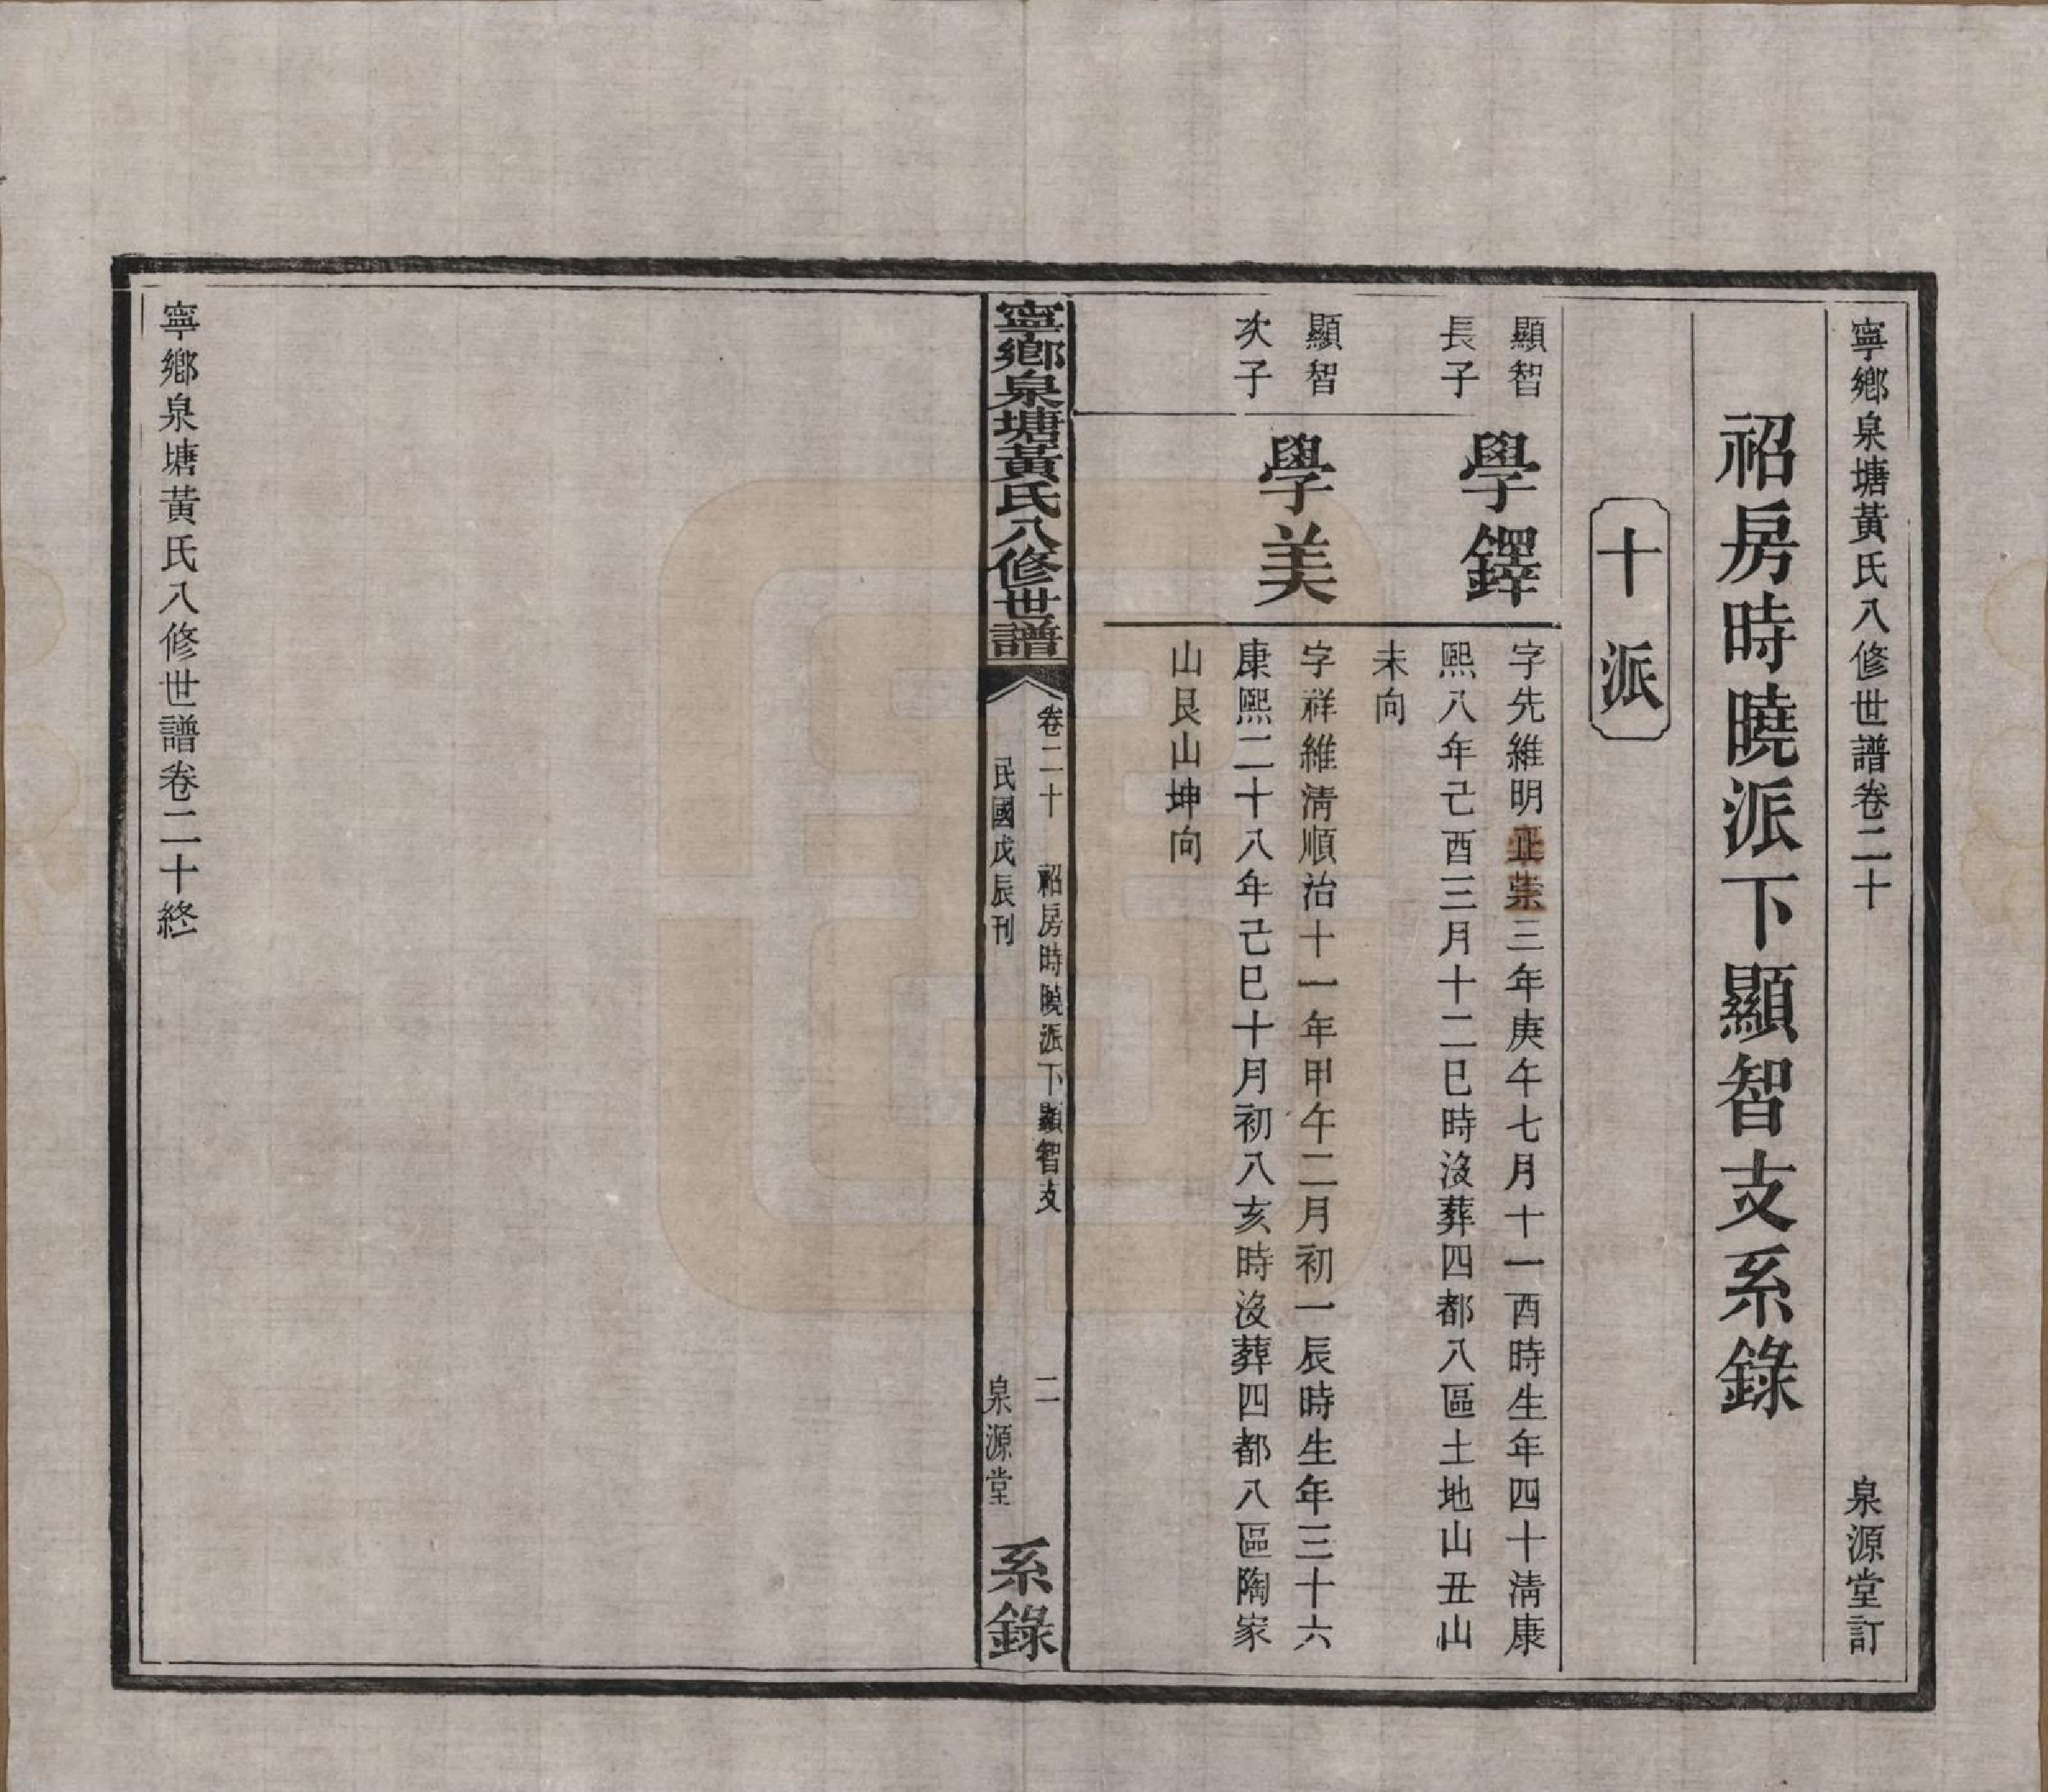 寧鄉泉塘黃氏八修世譜卷二十　泉源堂訂
祒房時曉派下顯智支系錄
十派
顯智
長子
學鐸
字先維明正崇三年庚午七月十一酉時生年四十清康
熙八年己酉三月十二巳時沒葬四都八區土地山丑山
未向
顯智
次子
學美
字祥維清順治十一年甲午二月初一辰時生年三十六
康熙二十八年己巳十月初八亥時沒葬四都八區陶家
山艮山坤向
寧鄉泉塘黃氏八修世譜
卷二十　祒房時曉派下顯智支　二
民國戊辰刊　泉源堂
系錄
寧鄉泉塘黃氏八修世譜卷二十終